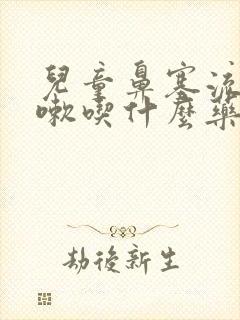 兒童鼻塞流
嗽喫什麼藥
劫後新生